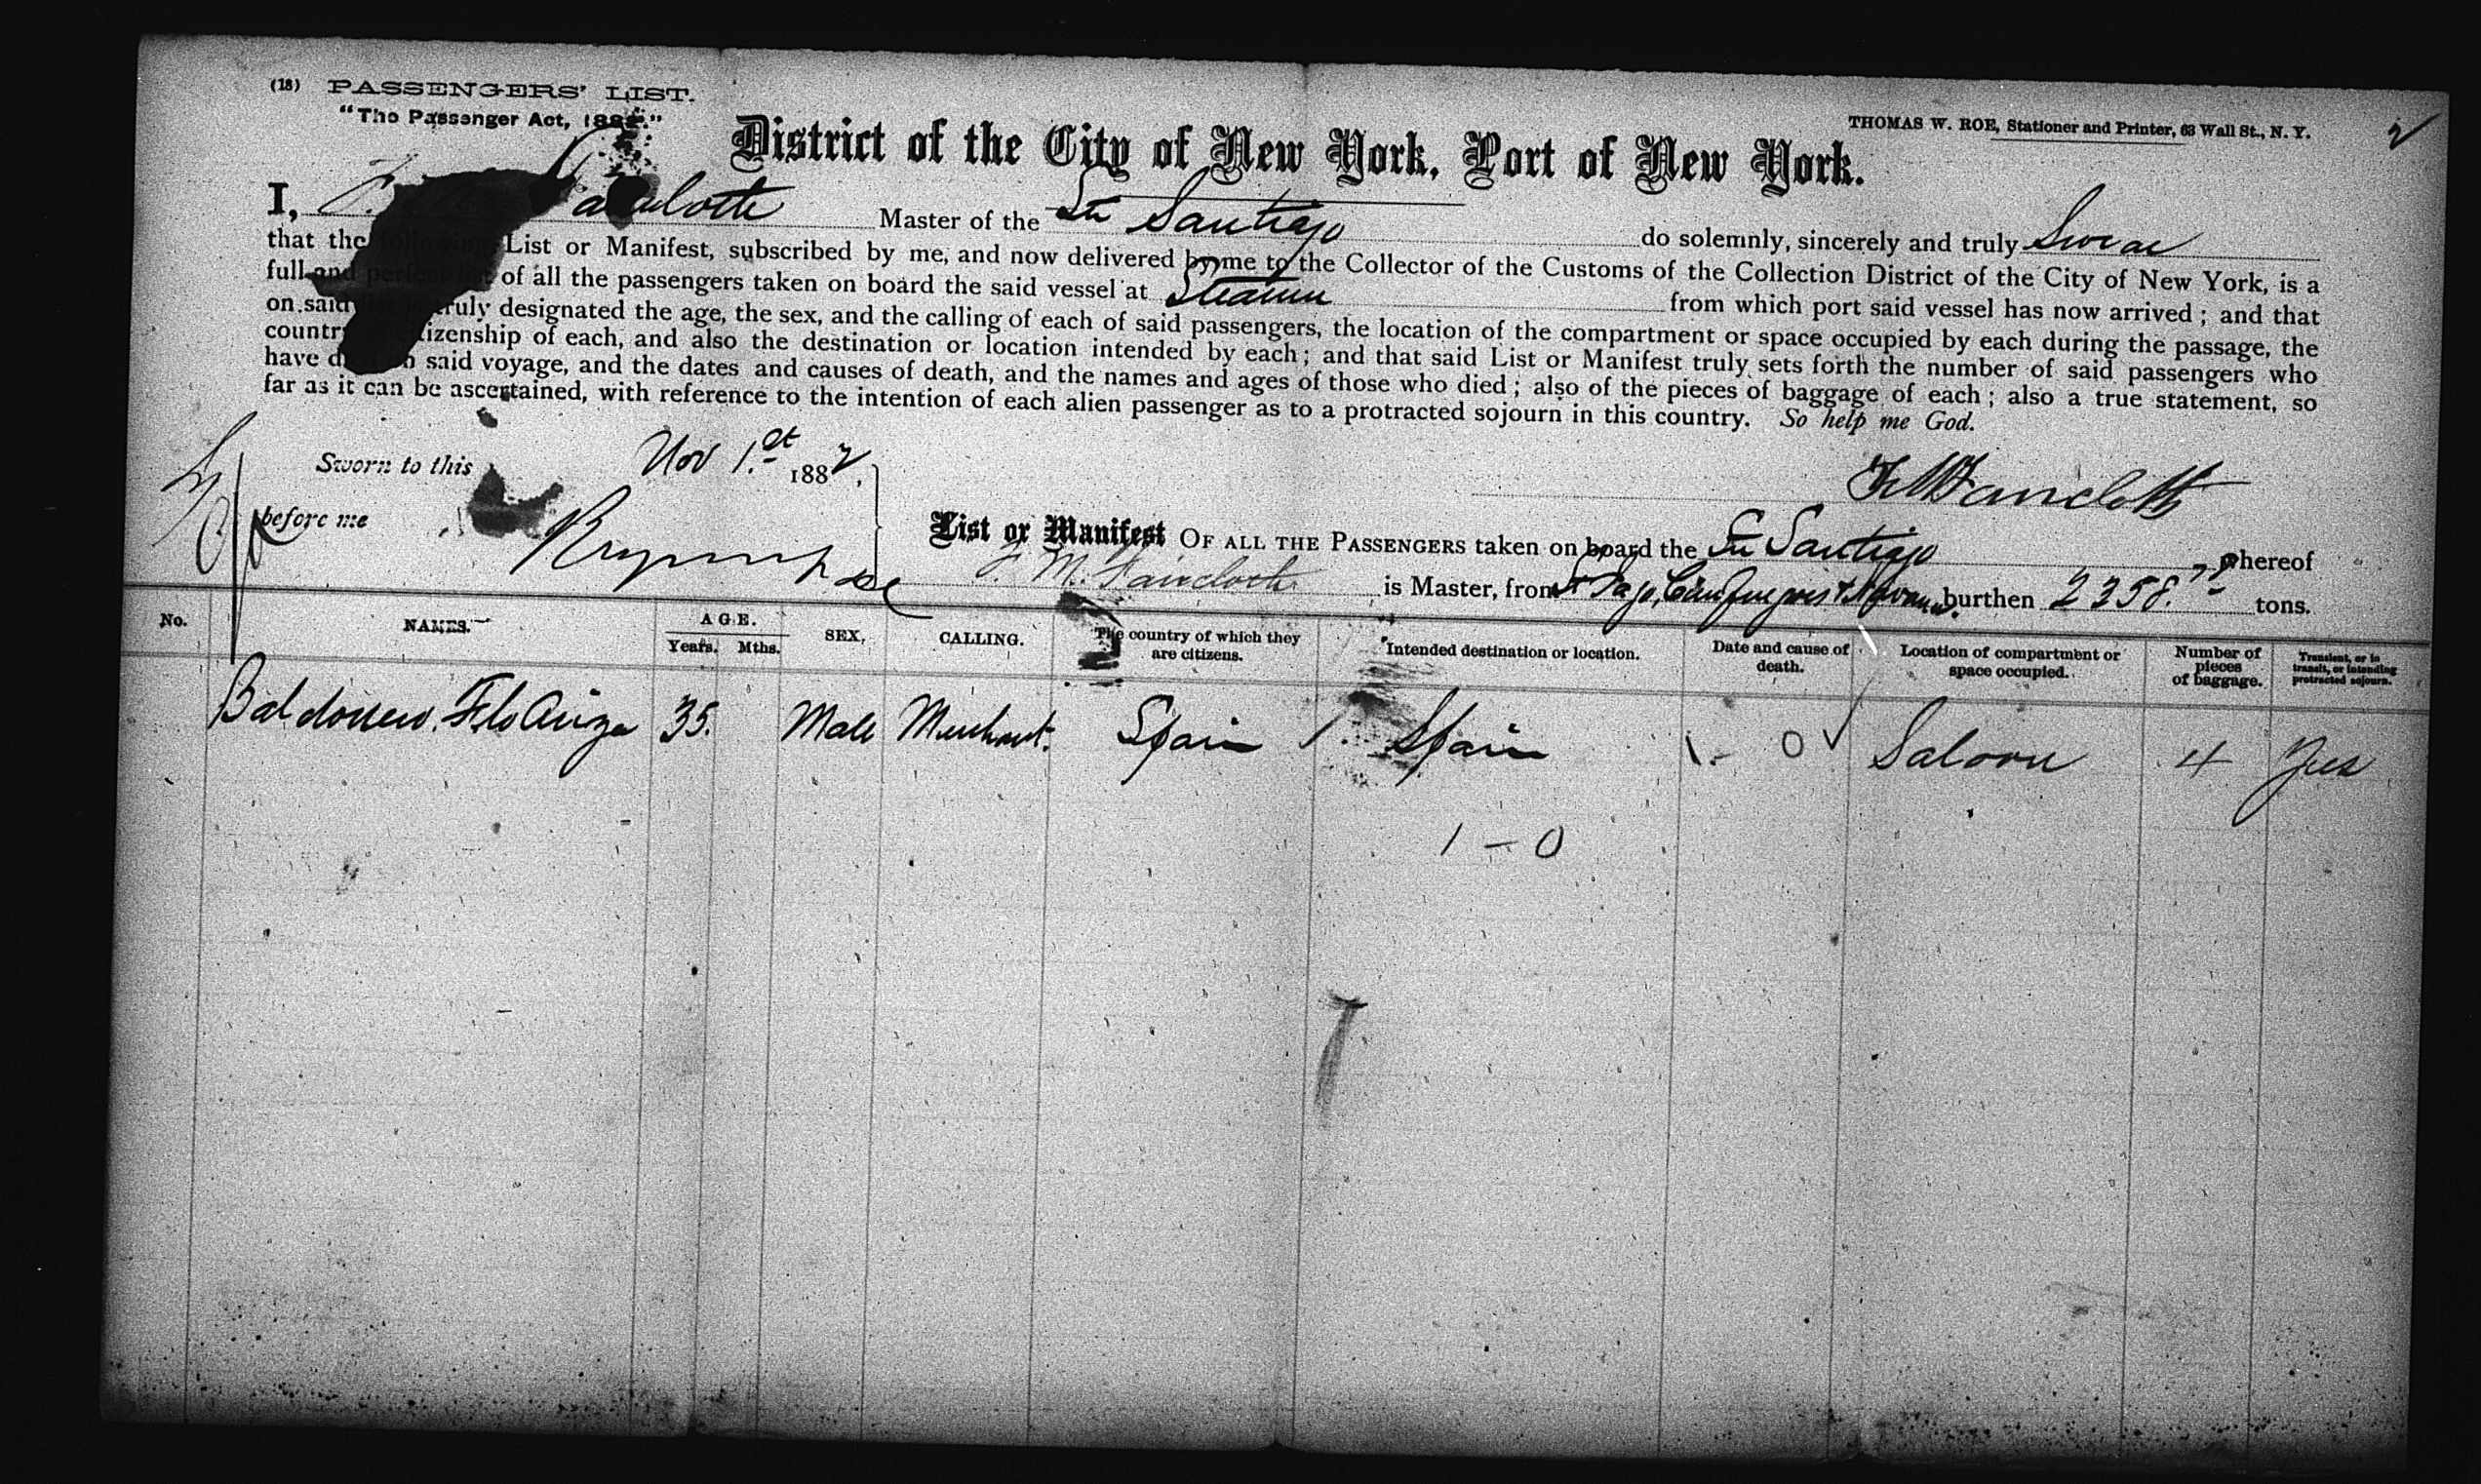 (18) PASSENGERS' LIST.
"The Passenger Act, 1882."
THOMAS W. ROE, Stationer and Printer, 63 Wall St., N. Y.
2
District of the City of New York, Port of New York.
I, F. Master of the Str Santiago do solemnly, sincerely and truly Swear
that the following List or Manifest, subscribed by me, and now delivered by me to the Collector of the Customs of the Collection District of the City of New York, is a
full and perfect list of all the passengers taken on board the said vessel at from which port said vessel has now arrived; and that
on said list is truly designated the age, the sex, and the calling of each of said passengers, the location of the compartment or space occupied by each during the passage, the
country of citizenship of each, and also the destination or location intended by each; and that said List or Manifest truly sets forth the number of said passengers who
have died on said voyage, and the dates and causes of death, and the names and ages of those who died; also of the pieces of baggage of each; also a true statement, so
far as it can be ascertained, with reference to the intention of each alien passenger as to a protracted sojourn in this country. So help me God.
Sworn to this Nov 1.st 1882,
F M Faircloth
before me
List or Manifest OF ALL THE PASSENGERS taken on board the Str Santiago whereof
F. M. Faircloth is Master, from St Jago, Cienfuegos & Havana. burthen 2358. tons.
No. NAMES. AGE. Years. Mths. SEX, CALLING. The country of which they are citizens. Intended destination or location. Date and cause of death. Location of compartment or space occupied. Number of pieces of baggage. Transient, or in transit, or intending protracted sojourn.
35. Male Merchant. Spain 1 Spain 1 - 0 Saloon 4 Yes
1 - 0